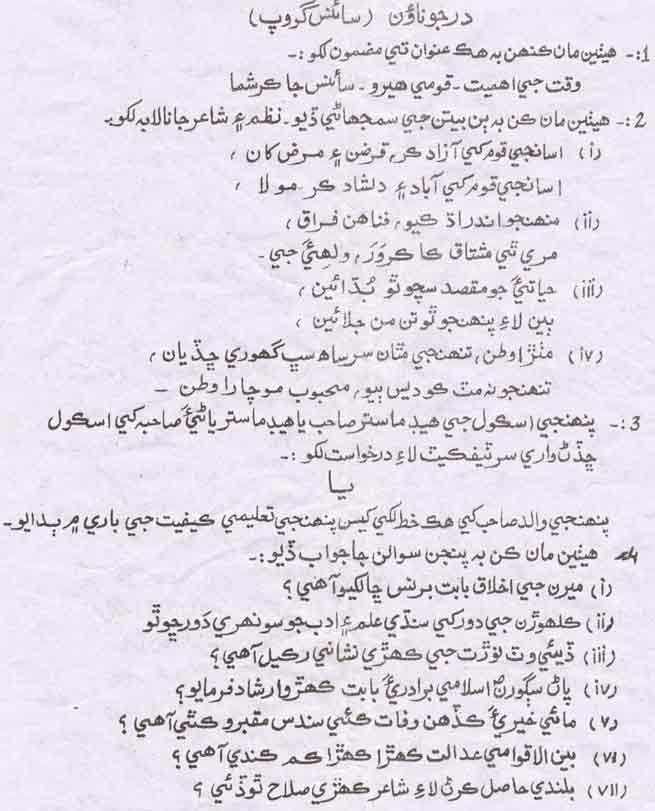 درجو ناؤن (سائنس گروپ)
1:- هيٺين مان ڪنهن به هڪ عنوان تي مضمون لکو :-
وقت جي اهميت - قومي هيرو - سائنس جا ڪرشما
2:- هيٺين مان ڪن به ٻن بيتن جي سمجهاڻي ڏيو - نظم ۽ شاعر جا نالا به لکو -
(i) اسانجي قوم کي آزاد ڪر، قرضن ۽ مرض کان ،
اسانجي قوم کي آباد ۽ دلشاد ڪر مولا ،
(ii) منهنجو اندر اڌ ڪيو، فنا هن فراق ،
مري ٿي مشتاق ڪا ڪروَرَ، ولهيءَ جي -
(iii) حياتيءَ جو مقصد سچو ٿو ٻُڌائين ،
ٻين لاءِ پنهنجو ٿو تن من جلائين ،
(iv) مٺڙا وطن، تنهنجي مٿان سر ساھ سڀ گهوري ڇڏيان ،
تنهنجو نه مٽ ڪو ديس ٻيو، محبوب موچارا وطن -
3:- پنهنجي اسڪول جي هيڊ ماستر صاحب يا هيڊ ماسترياڻيءَ صاحبه کي اسڪول
ڇڏڻ واري سرٽيفڪيٽ لاءِ درخواست لکو :-
يا
پنهنجي والد صاحب کي هڪ خط لکي کيس پنهنجي تعليمي ڪيفيت جي باري ۾ ٻڌايو -
هيٺين مان ڪن به پنجن سوالن جا جواب ڏيو :-
(i) ميرن جي اخلاق بابت برنس ڇا لکيو آهي ؟
(ii) ڪلهوڙن جي دور کي سنڌي علم ۽ ادب جو سونهري دَور ڇو ٿو
(iii) ڏيئي وٽ نوڙت جي ڪهڙي نشاني رکيل آهي ؟
(iv) پاڻ سڳورنؐ اسلامي برادريءَ بابت ڪهڙو ارشاد فرمايو ؟
(v) مائي خيريءَ ڪڏهن وفات ڪئي سندس مقبرو ڪٿي آهي ؟
(vi) بين الاقوامي عدالت ڪهڙا ڪهڙا ڪم ڪندي آهي ؟
(vii) بلندي حاصل ڪرڻ لاءِ شاعر ڪهڙي صلاح ٿو ڏئي ؟